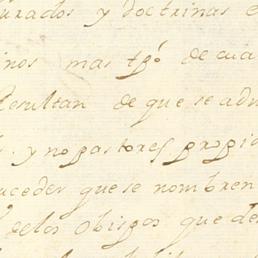 urados y doctrinas e
inos mas tpõ de cua
Resultan de que se adm
y no pastores propio
suceder que se nombren
de los Obispos que de